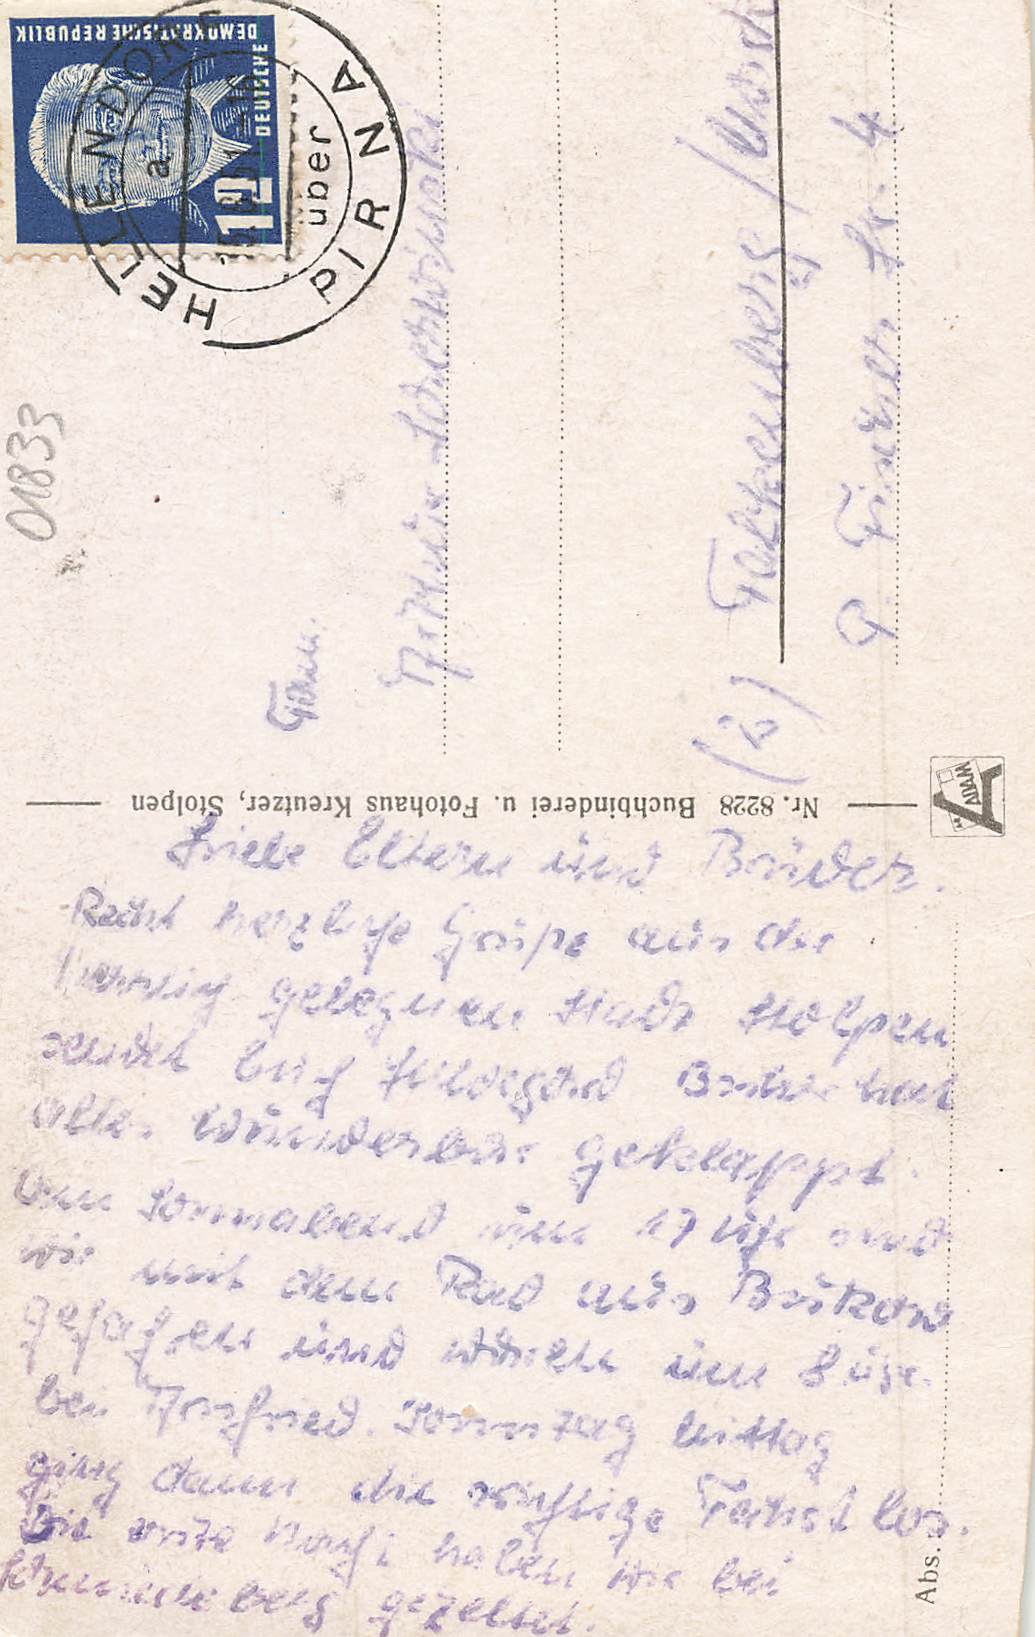 DEUTSCHE
DEMOKRATISCHE REPUBLIK
12
HELLENDORF
über
PIRNA
a
01833
Fam.
Falkenberg /
P. Str. 4
Nr. 8228 Buchbinderei u. Fotohaus Kreutzer, Stolpen
ADAM
Liebe Eltern und Brüder.
Recht herzliche Grüße aus der
herrlich gelegenen Stadt Stolpen
sendet Euch Hildegard Bisher hat
alles wunderbar geklappt.
Am Sonnabend um 17 Uhr sind
wir mit dem Rad aus
gefahren und waren um 8 Uhr
bei Sonntag Mittag
ging dann die richtige Fahrt los.
Die erste Nacht haben wir bei
Schmiedeberg gezeltet.
Abs.